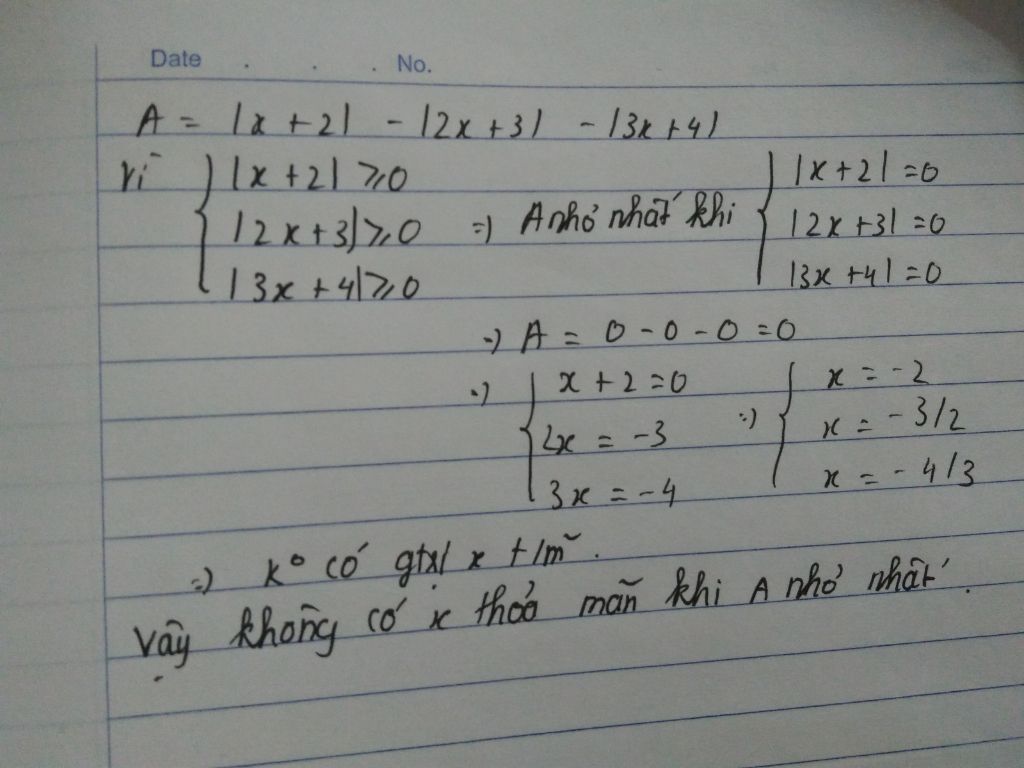 Date . . . No.
A = |x + 2| - |2x + 3| - |3x + 4|
vì { |x + 2| ⩾ 0
|2x + 3| ⩾ 0 => A nhỏ nhất khi { |x + 2| = 0
|3x + 4| ⩾ 0
|2x + 3| = 0
|3x + 4| = 0
=> A = 0 - 0 - 0 = 0
=> { x + 2 = 0
2x = -3
3x = -4
=> { x = -2
x = -3/2
x = -4/3
=> k° có gtrị x t/m~.
Vậy không có x thoả mãn khi A nhỏ nhất.